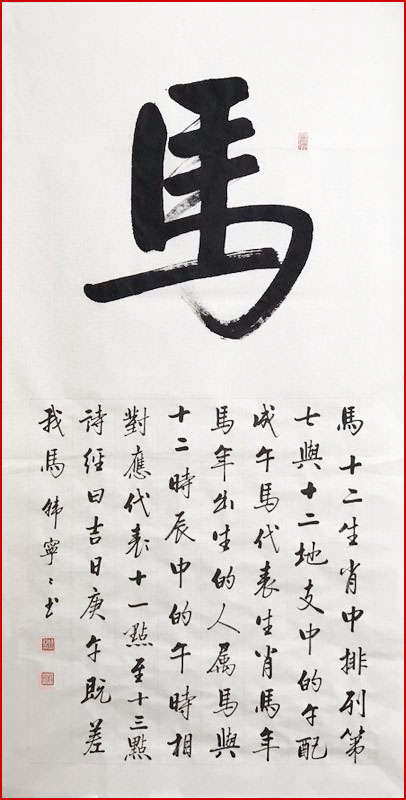 馬
馬十二生肖中排列第
七與十二地支中的午配
成午馬代表生肖馬年
馬年出生的人属馬與
十二時辰中的午時相
對應代表十一點至十三點
詩經曰吉日庚午既差
我馬 寧〻书